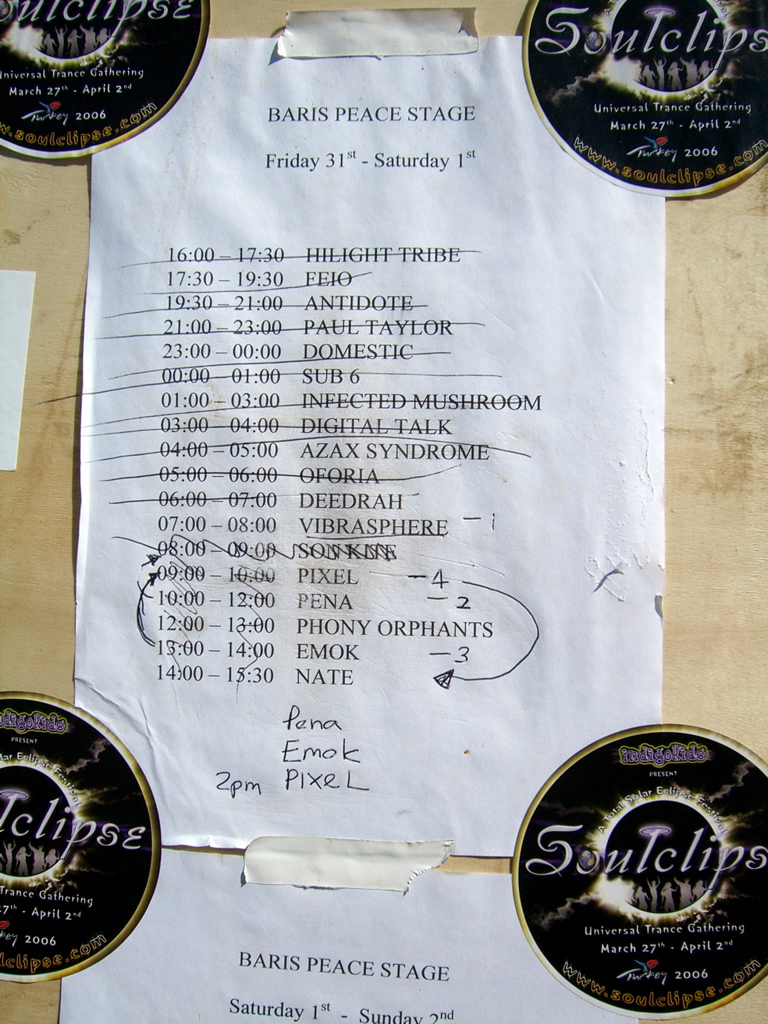 Soulclipse
Universal Trance Gathering
March 27th - April 2nd
Turkey 2006
www.soulclipse.com
Soulclips
Universal Trance Gathering
March 27th - April 2nd
Turkey 2006
www.soulclipse.com
BARIS PEACE STAGE
Friday 31st - Saturday 1st
16:00 – 17:30 HILIGHT TRIBE
17:30 – 19:30 FEIO
19:30 – 21:00 ANTIDOTE
21:00 – 23:00 PAUL TAYLOR
23:00 – 00:00 DOMESTIC
00:00 – 01:00 SUB 6
01:00 – 03:00 INFECTED MUSHROOM
03:00 – 04:00 DIGITAL TALK
04:00 – 05:00 AZAX SYNDROME
05:00 – 06:00 OFORIA
06:00 – 07:00 DEEDRAH
07:00 – 08:00 VIBRASPHERE – 1
08:00 – 09:00 SON KITE
09:00 – 10:00 PIXEL – 4
10:00 – 12:00 PENA – 2
12:00 – 13:00 PHONY ORPHANTS
13:00 – 14:00 EMOK – 3
14:00 – 15:30 NATE
Pena
Emok
2pm PIXEL
indigokids
PRESENT
lar Eclipse Festival
lclipse
Trance Gathering
- April 2nd
key 2006
lclipse.com
indigokids
PRESENT
A Total Solar Eclipse Festival
Soulclips
Universal Trance Gathering
March 27th - April 2nd
Turkey 2006
www.soulclipse.com
BARIS PEACE STAGE
Saturday 1st - Sunday 2nd